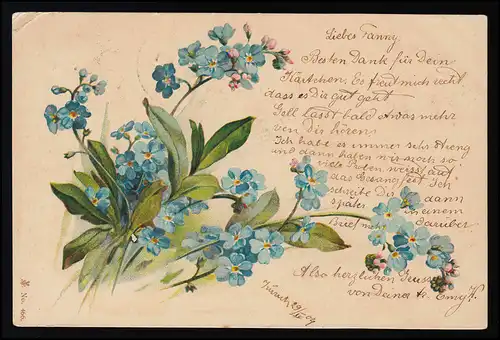 Liebes Fanny.
Besten Dank für Dein
Kärtchen. Es freut mich recht
dass es Dir gut geht.
Gell lasst bald etwas mehr
von dir hören.
Ich habe es immer sehr streng
und dann haben wir so
viele Proben auf
das Ich
schreibe Dir dann
später in einem
Brief mehr darüber
Also herzlichen Gruss
von Deiner Emy K.
Zürich 29/ 09
No. 466.